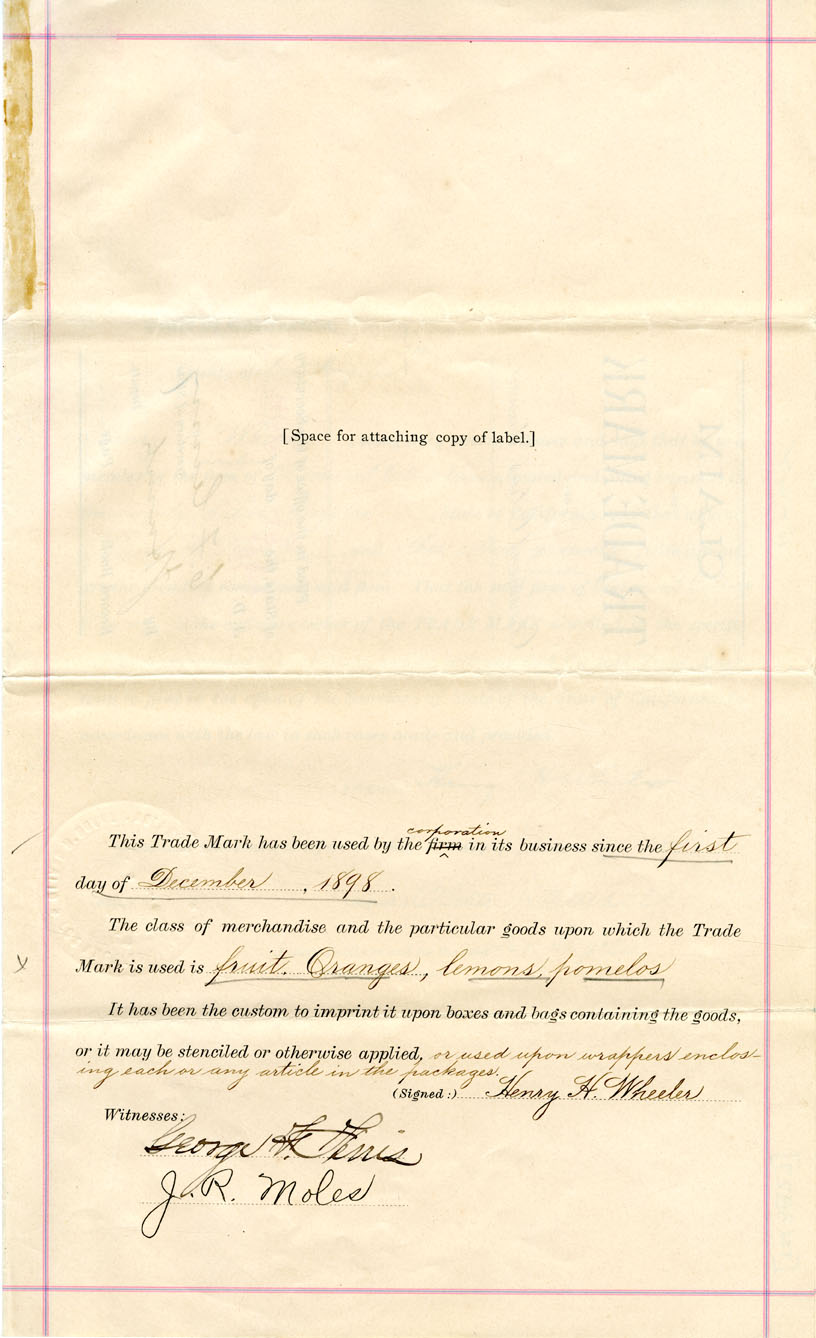 [Space for attaching copy of label.]
corporation
This Trade Mark has been used by the firm in its business since the first
day of December , 1898 .
The class of merchandise and the particular goods upon which the Trade
Mark is used is fruit. Oranges, lemons, pomelos
It has been the custom to imprint it upon boxes and bags containing the goods,
or it may be stenciled or otherwise applied, or used upon wrappers enclos-
ing each or any article in the packages.
(Signed:) Henry H. Wheeler
Witnesses:
George F. Ferris
J. R. Moles
TRADEMARK
CLAIM